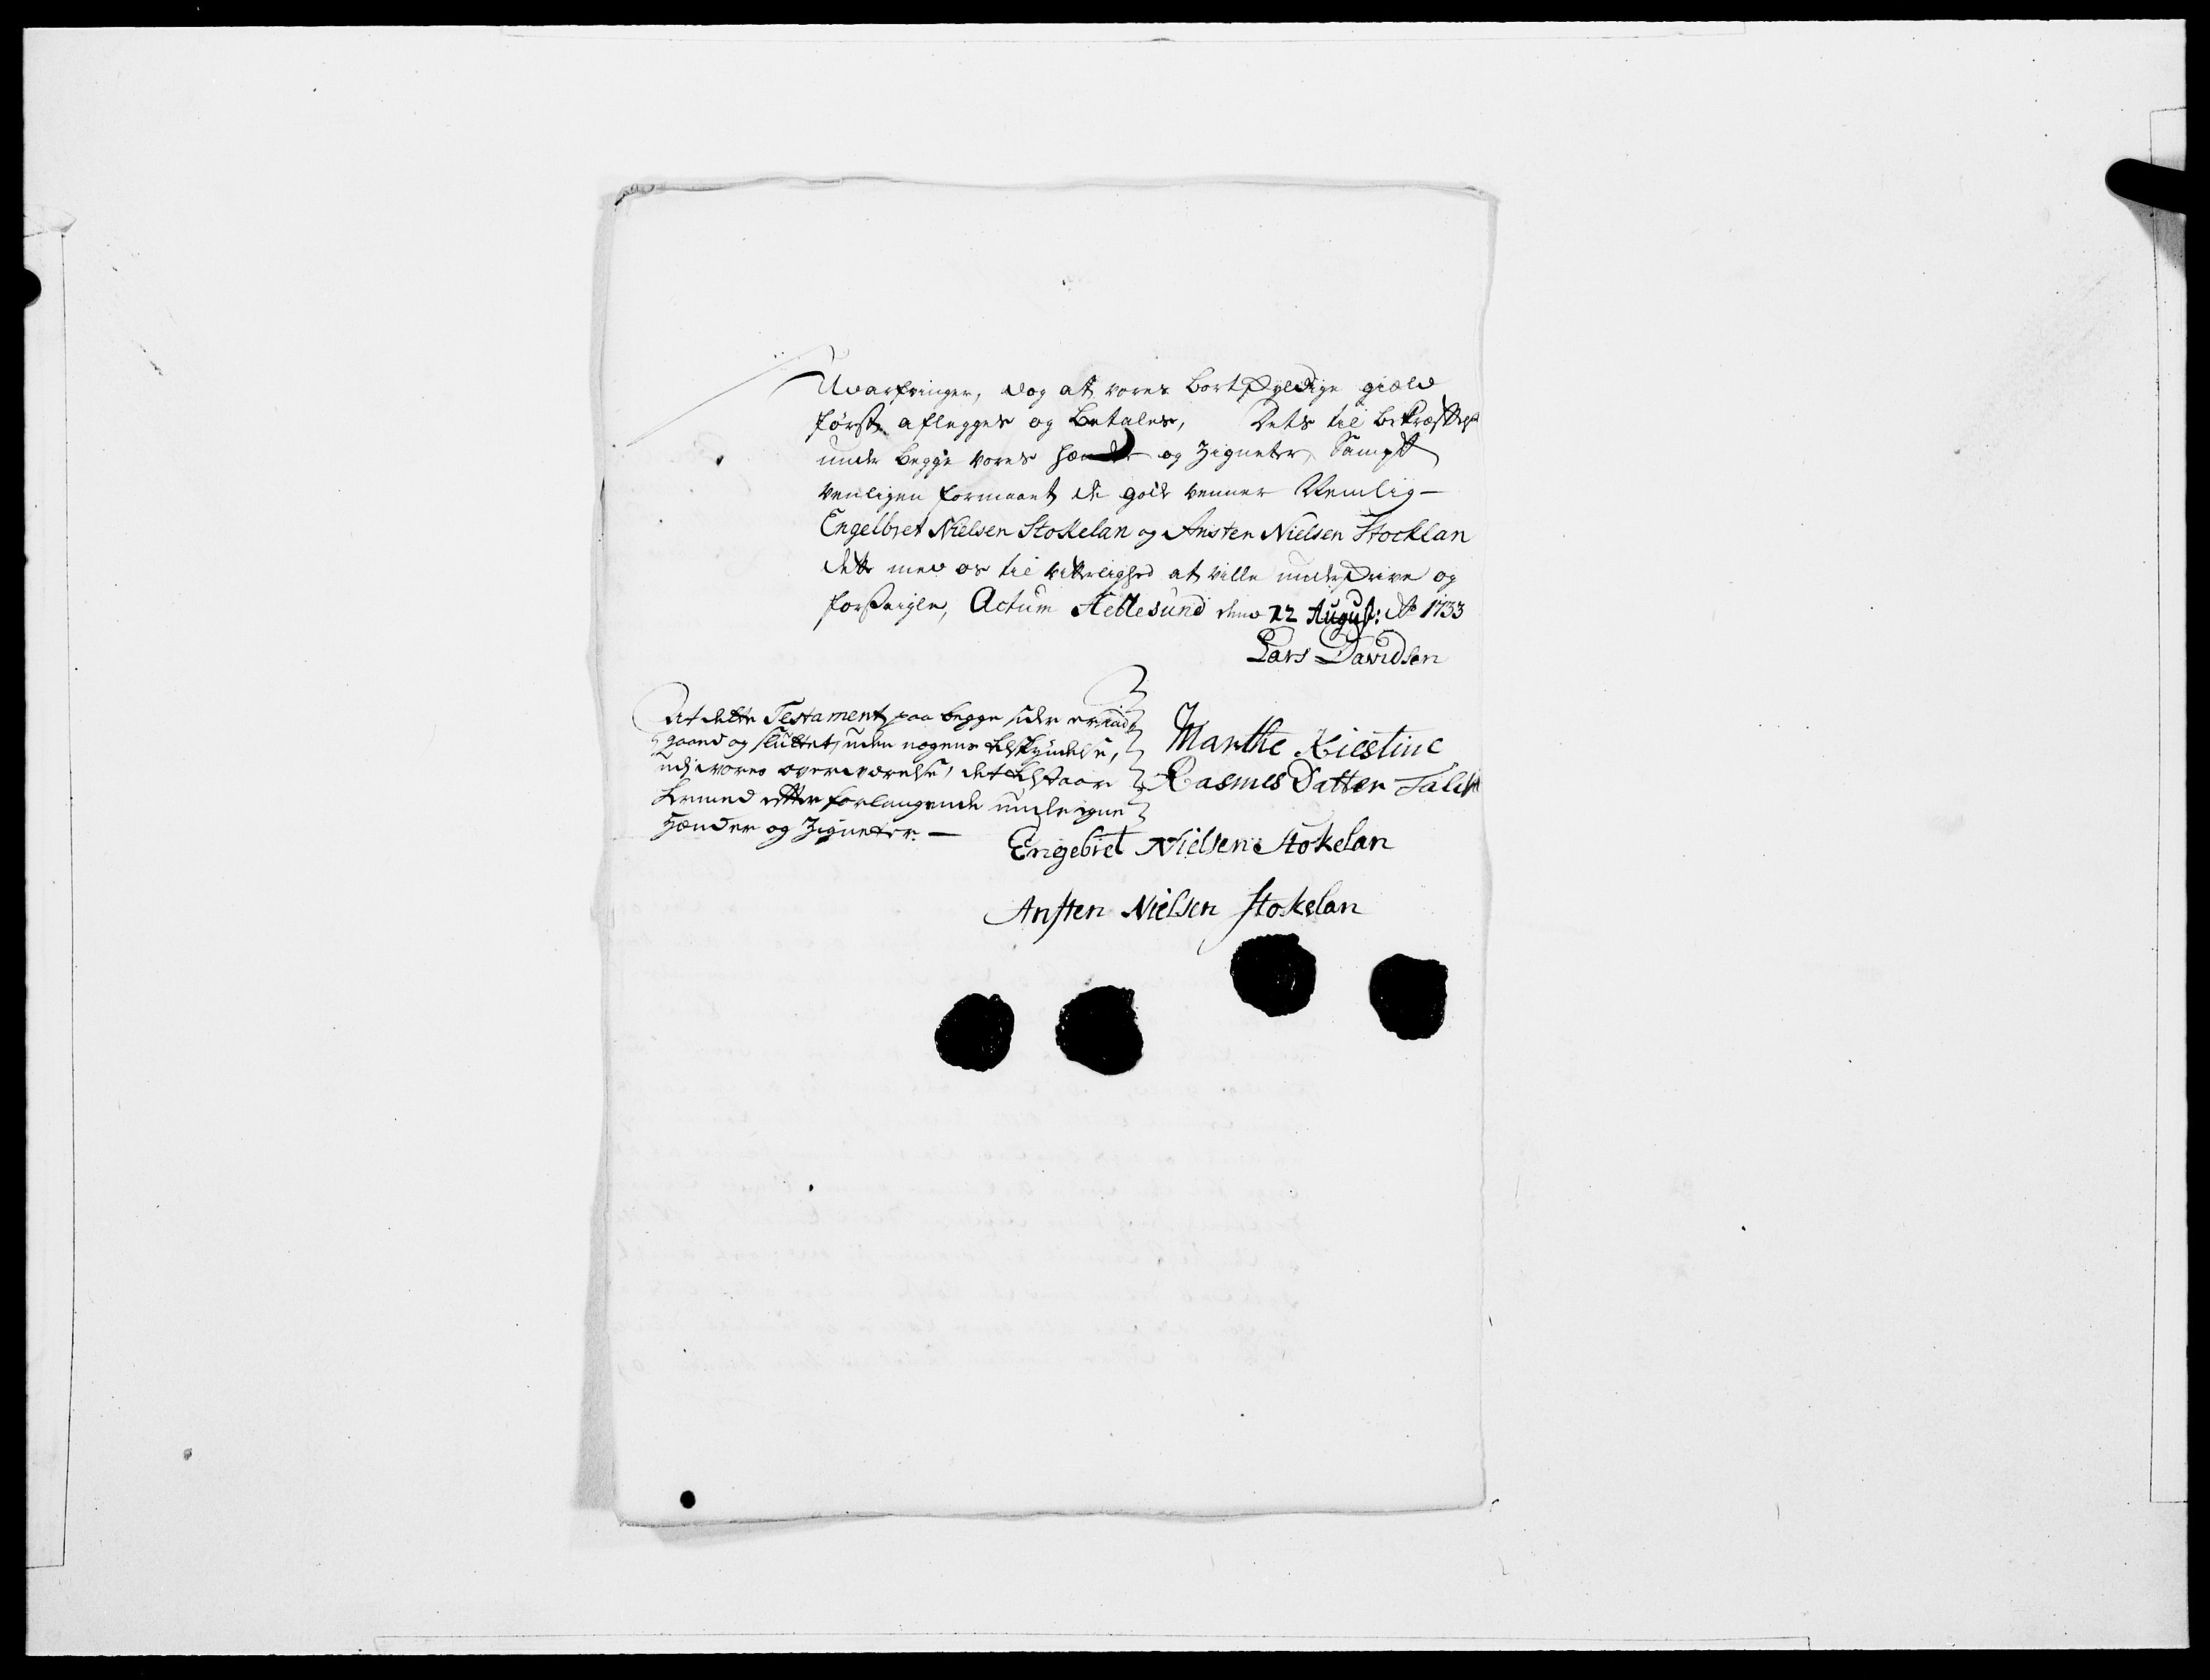 Uvarfringer, dog at vores Bortskyldige giæld
først aflegges og Betales, Dets til bekræftelse
under begge vores hænder og Zigneter, Sampt
venligen formaant de gode venner Nemlig-
Engelbret Nielsen Stokelan og Ansten Nielsen Stocklan
dette med os til vitterlighed at ville underskrive og
forseigle, Actum Hellesund denn 12 August: Ao 1733
Lars Davidsen
At dette Testament paa begge sider er ind
gaaed og sluttet, uden nogens tilskyndelse,
udj vores overværelse, det tilstaar
hermed efter forlangende under egne
Hænder og Zigneter. —
Marthe Kiestine
Rasmus Datter Falck
Engebret Nielsen Stokelan
Ansten Nielsen Stokelan